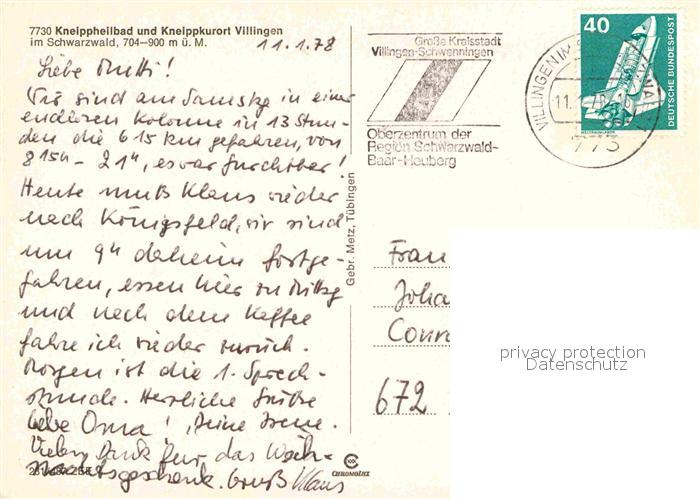 7730 Kneippheilbad und Kneippkurort Villingen
im Schwarzwald, 704–900 m ü. M.
11.1.78
Liebe Mutti!
Wir sind am Samstag in einer
endlosen Kolonne in 13 Stun-
den die 615 km gefahren, von
8 15h - 21h, es war furchtbar!
Heute muß Klaus wieder
nach Königsfeld, wir sind
um 9h daheim fortge-
fahren, essen hier zu Mittag
und nach dem Kaffee
fahre ich wieder zurück.
Morgen ist die 1. Sprech-
stunde. Herzliche Grüße
liebe Oma! Deine Irene.
Vielen Dank für das Weih-
nachtsgeschenk. Gruß Klaus
Gebr. Metz, Tübingen
CHROMOLUX
Große Kreisstadt
Villingen-Schwenningen
Oberzentrum der
Region Schwarzwald-
Baar-Heuberg
VILLINGEN IM
11.
773
40
DEUTSCHE BUNDESPOST
WELTRAUMLABOR
Frau
Joha
Conra
672
privacy protection
Datenschutz